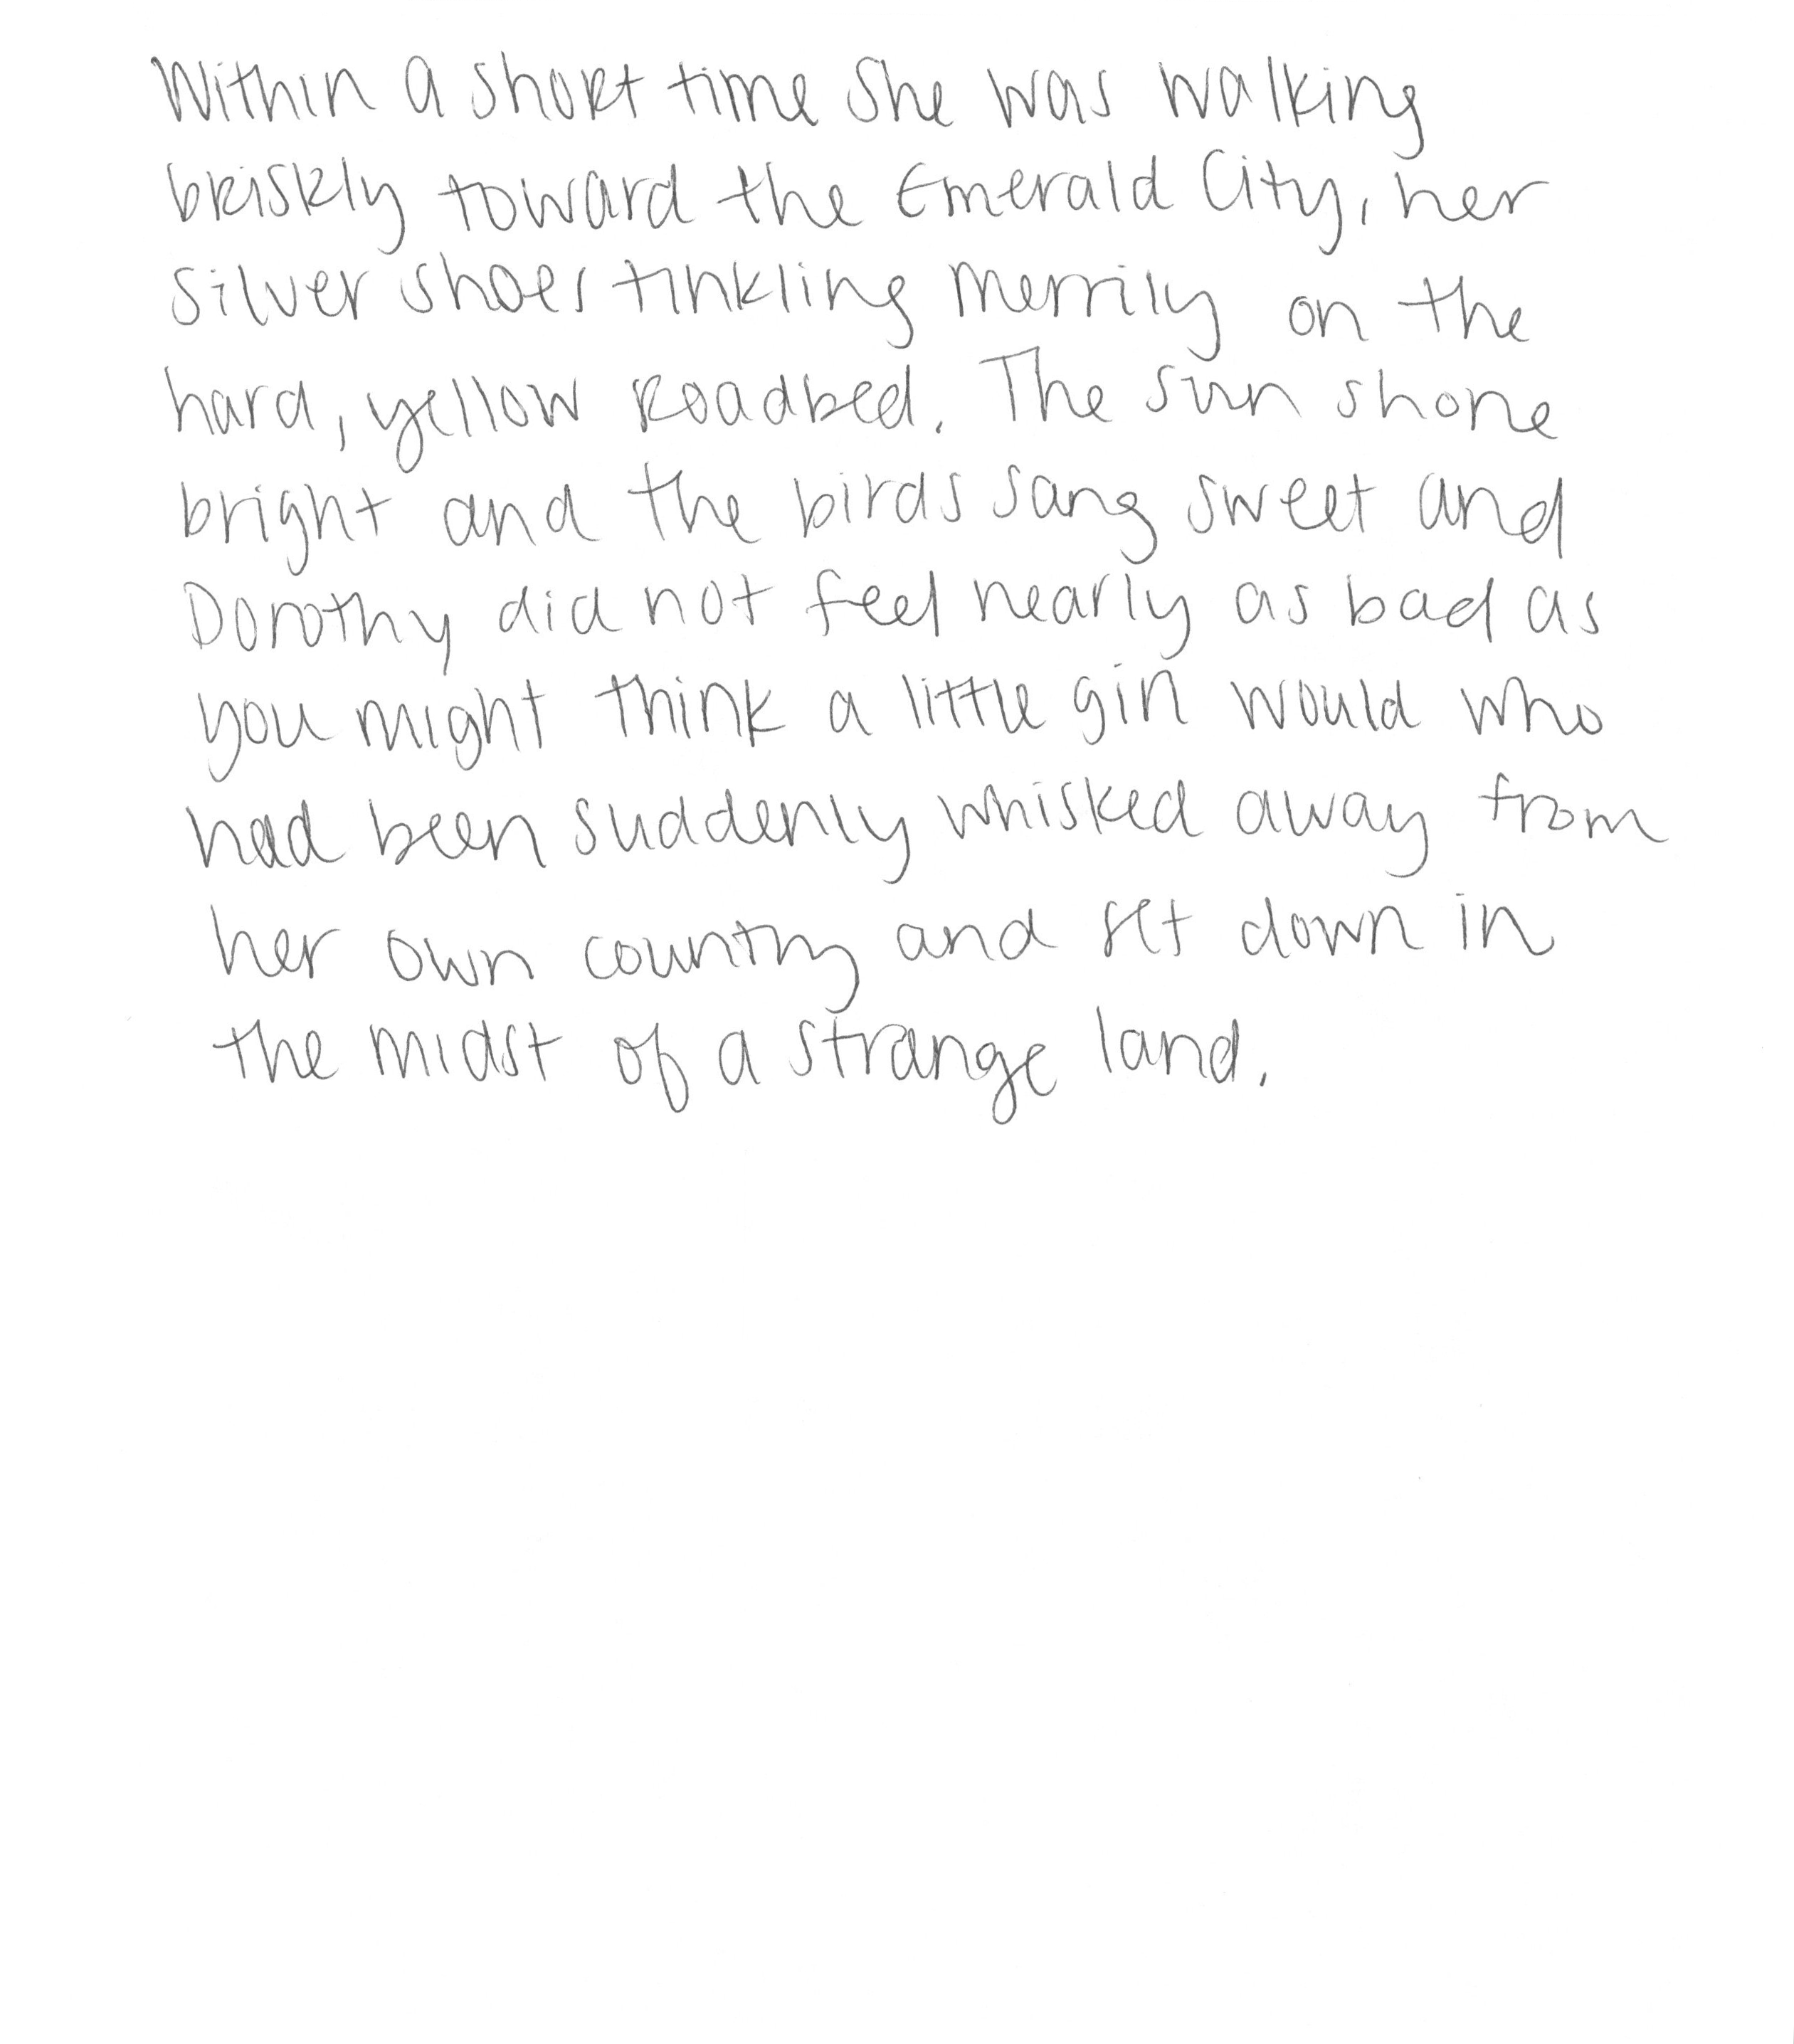 Within a short time she was walking
briskly toward the Emerald City, her
silver shoes tinkling merrily on the
hard, yellow roadbed. The sun shone
bright and the birds sang sweet and
Dorothy did not feel nearly as bad as
you might think a little girl would who
had been suddenly whisked away from
her own country and set down in
the midst of a strange land.